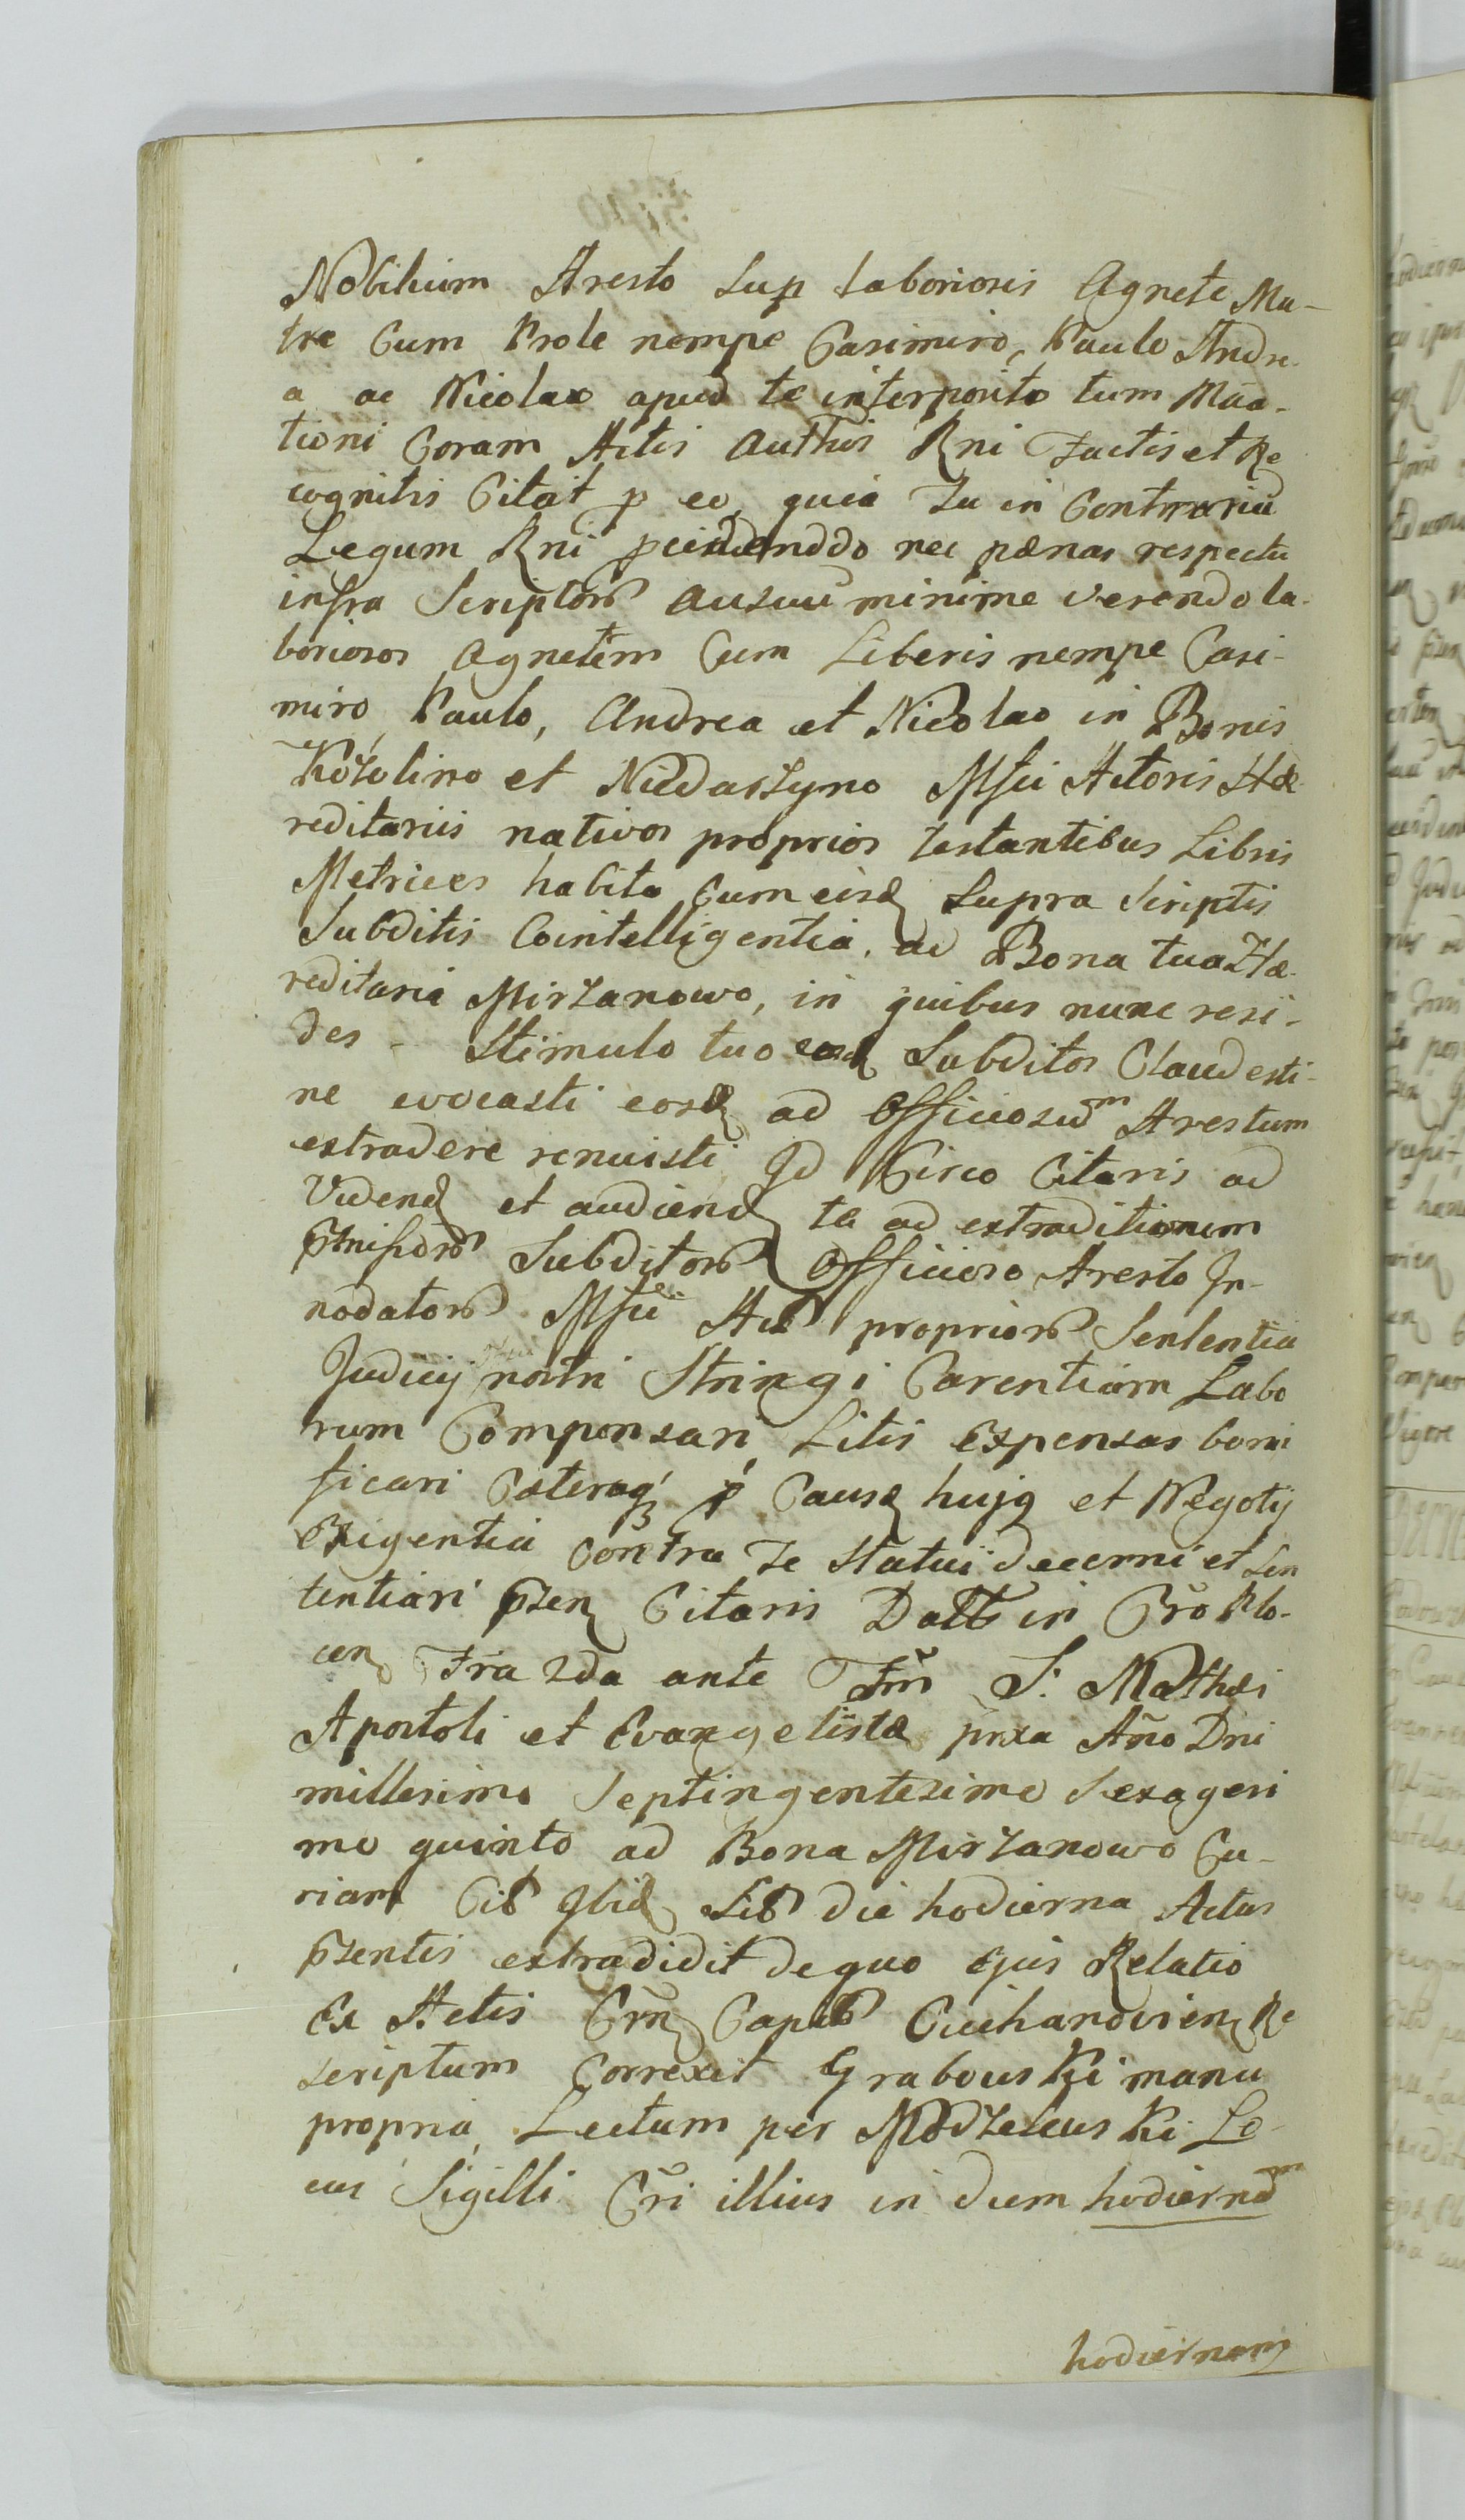 Nobilium Aresto Sup laboriosis Agnete Ma-
tre Cum Prole nempe Casimiro, Paulo Andre-
a ac Nicolao apud te interposito tum Mãa-
tioni Coram Actis Authĩs Rni Factis et Re
cognitis Citat p eo, quia Tu in Contrariũ
Legum Rni nec pænas respectu
infra Scriptorũ Ausuũ minime verendo la-
boriosos Agnetem Cum Liberis nempe Casi-
miro, Paulo, Andrea et Nicolao in Bonis
Kozolino et Niedastyno Mfci Actoris Hæ-
reditariis nativos proprios testantibus Libris
Metrices habita Cum eisd Supra Scriptis
Subditis Cointelligentia, ad Bona tua Hæ-
reditaria Mirzanowo, in quibus nunc resi-
des - Stimulo tuo eosd Subditos Claudesti-
ne evocasti eosd ad Officiosũm Arestum
extradere renuisti Id Circo Citaris ad
Videnđ et audienđ te ad extraditionem
Subditorũ Officioso Aresto In-
nodatorũ Mfci Act propriorũ Sententia
Judicij nostri Stringi Carentiam Labo
rum Compensari, Litis Expensas boni
ficari Cæteraq; p Causæ hujq et Negotij
Exigentia Contra Te Statui decerni et Sen
tentiari pñsen Citaris Datt in Crõ Plo-
cen Fria 2da ante Fm̃ S: Mathæi
Apostoli et Evangelistæ prxa Año Dni
millesimo Septingentesimo Sexagesi
mo quinto ad Bona Mirzanowo Cu-
riam Cit Ibid Sit die hodierna Actus
pñsentis extradidit de quo Ejus Relatio
Ex Actis Crn Capit Ciechanovien Re
scriptum Correxit Grabowski manu
propria, Lectum per Modzelewski Lo-
cus Sigilli Cr̃i illius in diem hodiernãm
hodiernam